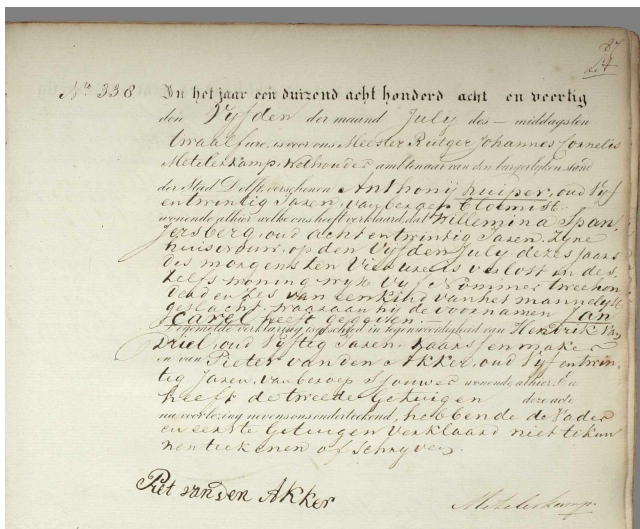 87
No 338
In het jaar een duizend acht honderd acht en veertig
den Vyfden der maand July des – middagsten
twaalf ure, is voor ons Meester Rutger Johannes Cornelis
Metelerkamp, Wethouder ambtenaar van den burgerlyken stand
der Stad Delft, verschenen Anthonij Kuiper, oud Vyf
entwintig Jaren, van beroep
wonende alhier welke ons heeft verklaard, dat Willemina Span
Jersberg, oud acht entwintig Jaren, Zyne
huisvrouw, op den Vyfden July dezes jaars
des morgens ten Vier ure is verlost in des
zelfs woning wyk Vyf Nommer tweehon
derd en zes van een kind van het mannelyk
geslacht, waaraan hij de voornamen Jan
Karel heeft gegeven
Voormelde verklaring is geschied in tegenwoordigheid van Hendrik Van
Driel, oud Vyftig Jaren, Kaarsenmaker
en van Pieter van den Akker, oud Vyf entwin
tig Jaren, van beroep Sjouwer wonende alhier. En
heeft de tweede Getuigen deze acte
na voorlezing nevens ons onderteekend, hebbende de Vader
en eerste Getuigen Verklaard niet te kun
nen teekenen of Schryven.
Piet van den Akker
Metelerkamp.